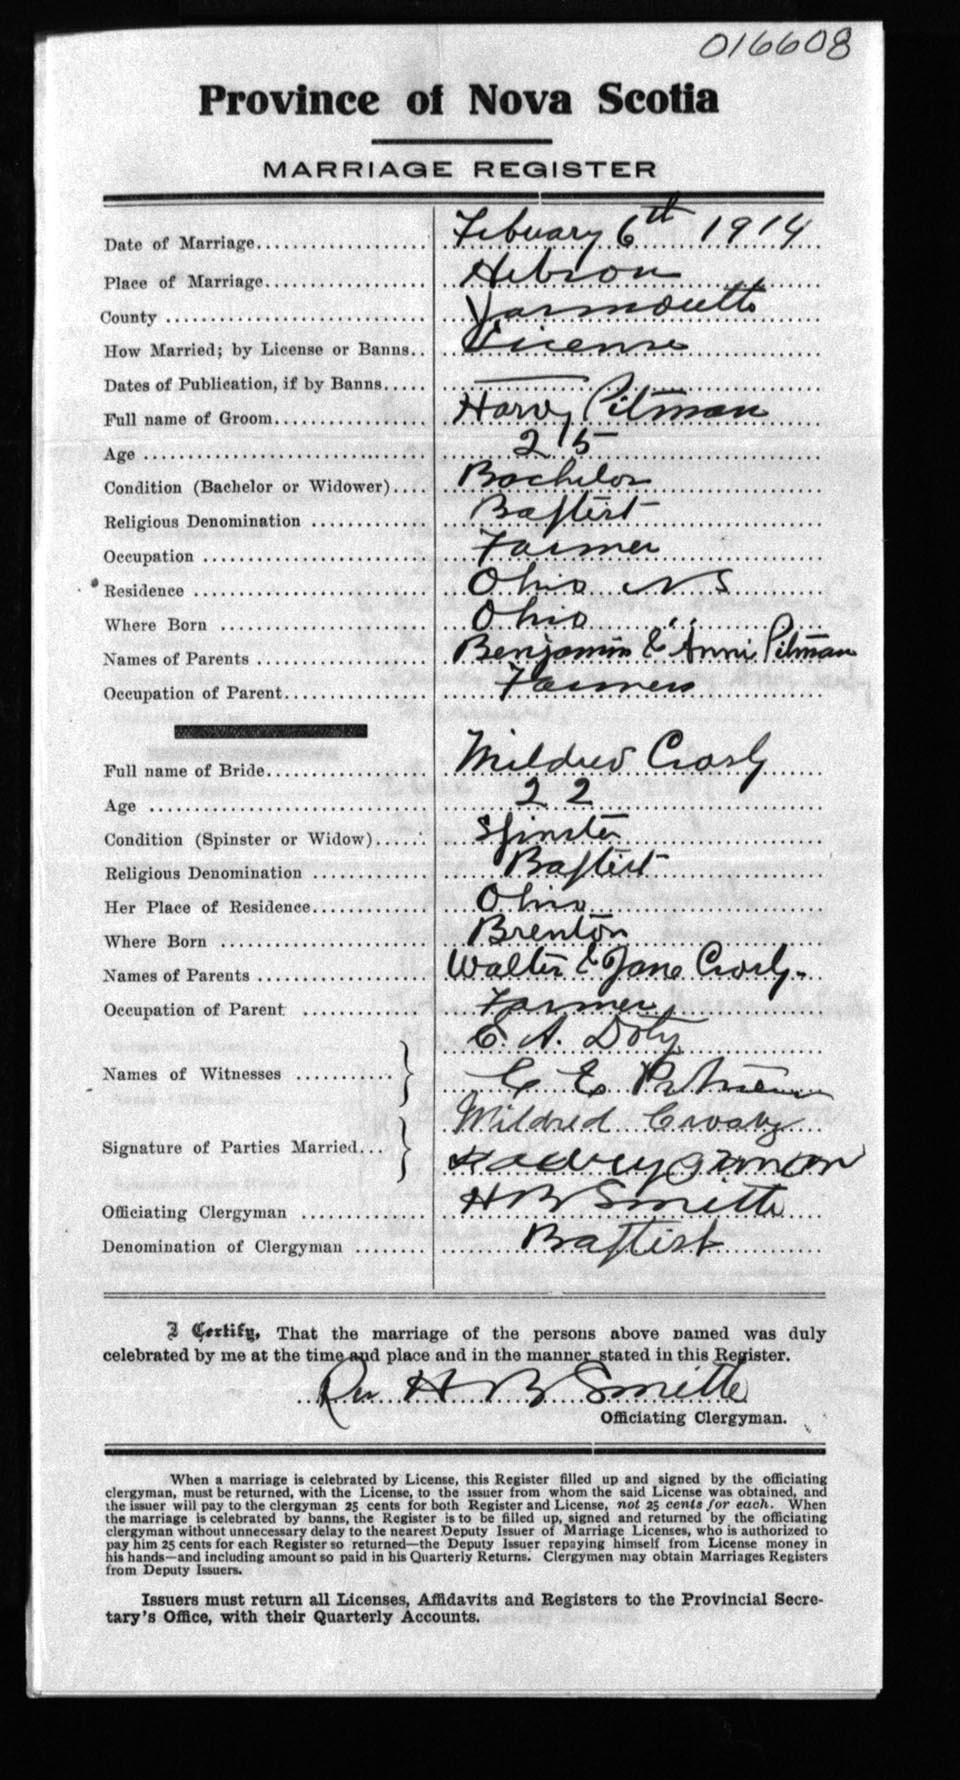 016608
Province of Nova Scotia
MARRIAGE REGISTER
Date of Marriage Febuary 6th 1914
Place of Marriage Hebron
County Yarmouth
How Married; by License or Banns License
Dates of Publication, if by Banns
Full name of Groom Harvy Pitman
Age 25
Condition (Bachelor or Widower) Bachelor
Religious Denomination Baptist
Occupation Farmer
Residence Ohio N S
Where Born Ohio " "
Names of Parents Benjamin & Annie Pitman
Occupation of Parent Farmers
Full name of Bride Mildred Crosby
Age 22
Condition (Spinster or Widow) Spinster
Religious Denomination Baptist
Her Place of Residence Ohio
Where Born Brenton
Names of Parents Walter & Jane Crosby
Occupation of Parent Farmer
E. A. Doty
Names of Witnesses
C E
Mildred Crosby
Signature of Parties Married
Officiating Clergyman H B Smith
Denomination of Clergyman Baptist
I Certify, That the marriage of the persons above named was duly
celebrated by me at the time and place and in the manner stated in this Register.
Rev H B Smith
Officiating Clergyman.
When a marriage is celebrated by License, this Register filled up and signed by the officiating
clergyman, must be returned, with the License, to the issuer from whom the said License was obtained, and
the issuer will pay to the clergyman 25 cents for both Register and License, not 25 cents for each. When
the marriage is celebrated by banns, the Register is to be filled up, signed and returned by the officiating
clergyman without unnecessary delay to the nearest Deputy Issuer of Marriage Licenses, who is authorized to
pay him 25 cents for each Register so returned—the Deputy Issuer repaying himself from License money in
his hands—and including amount so paid in his Quarterly Returns. Clergymen may obtain Marriages Registers
from Deputy Issuers.
Issuers must return all Licenses, Affidavits and Registers to the Provincial Secre-
tary's Office, with their Quarterly Accounts.